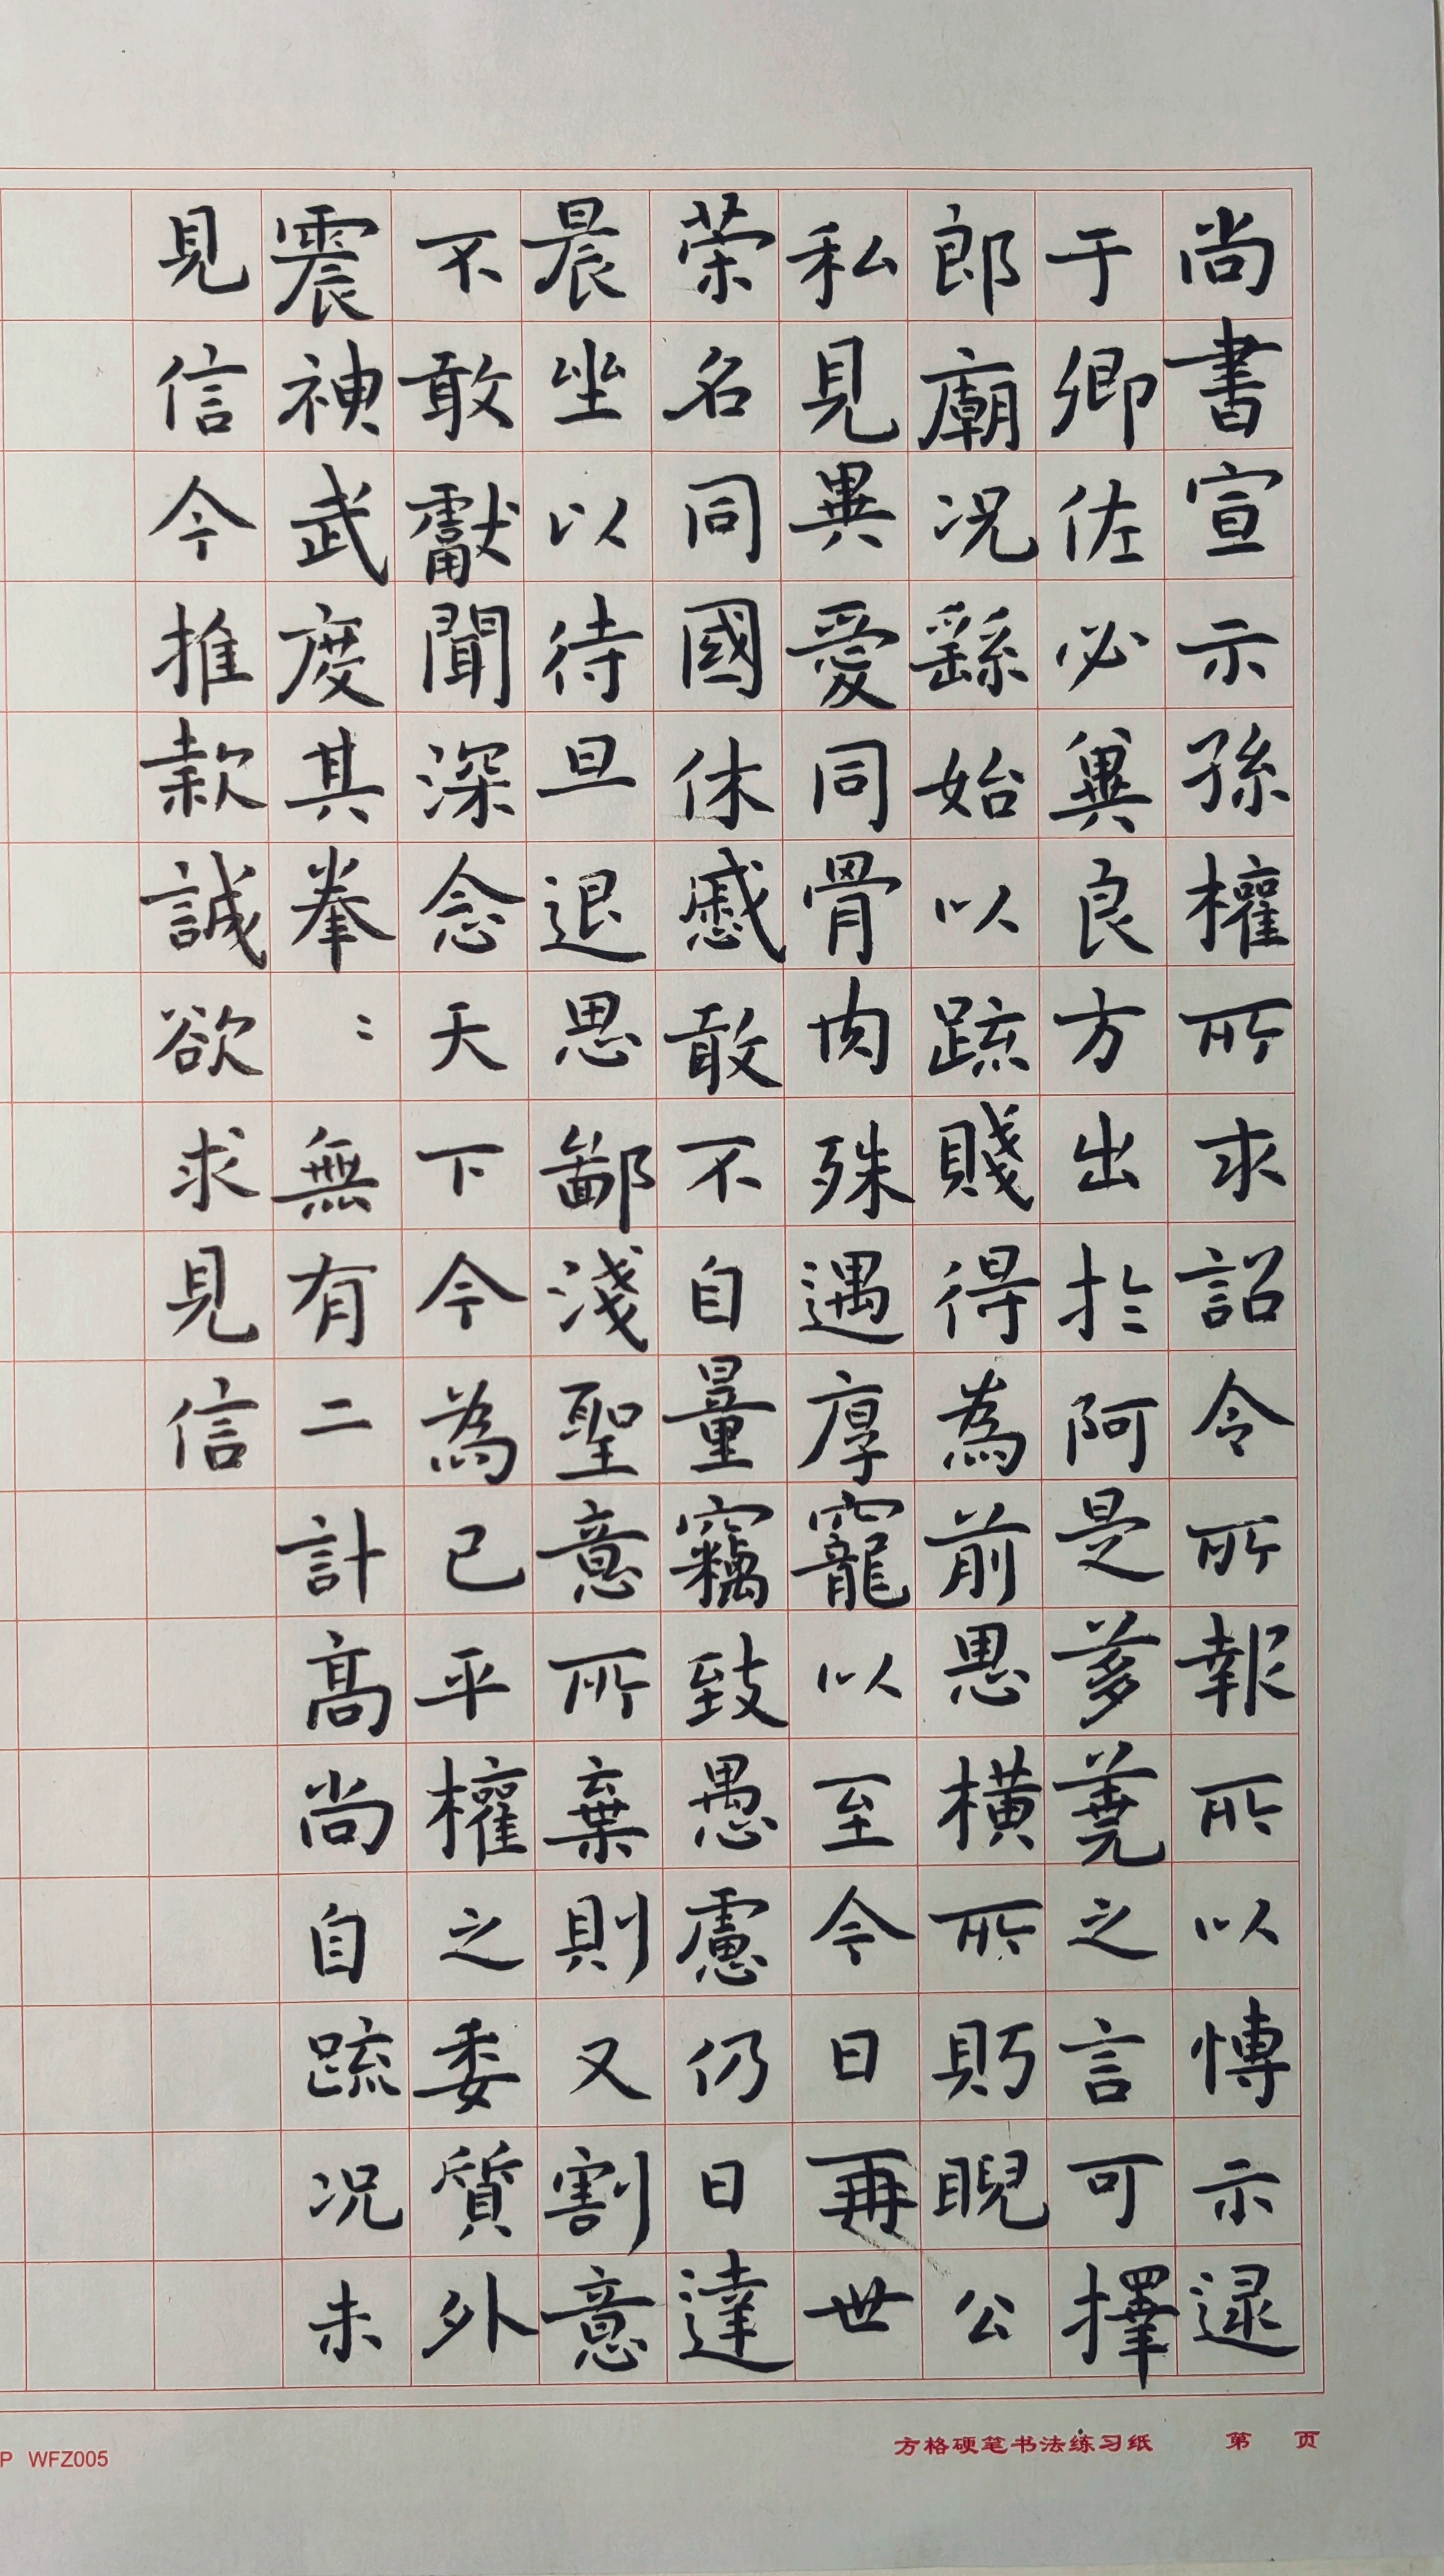 尚書宣示孫權所求詔令所報所以博示逮
于卿佐必冀良方出於阿是芻蕘之言可擇
郎廟况繇始以疏賤得為前恩橫所眄睨公
私見異愛同骨肉殊遇厚寵以至今日再世
荣名同國休慼敢不自量竊致愚慮仍日達
晨坐以待旦退思鄙淺聖意所棄則又割意
不敢獻聞深念天下今為已平權之委質外
震神武度其拳〻無有二計高尚自疏况未
見信今推款誠欲求見信
方格硬笔书法练习纸 第 页
P WFZ005